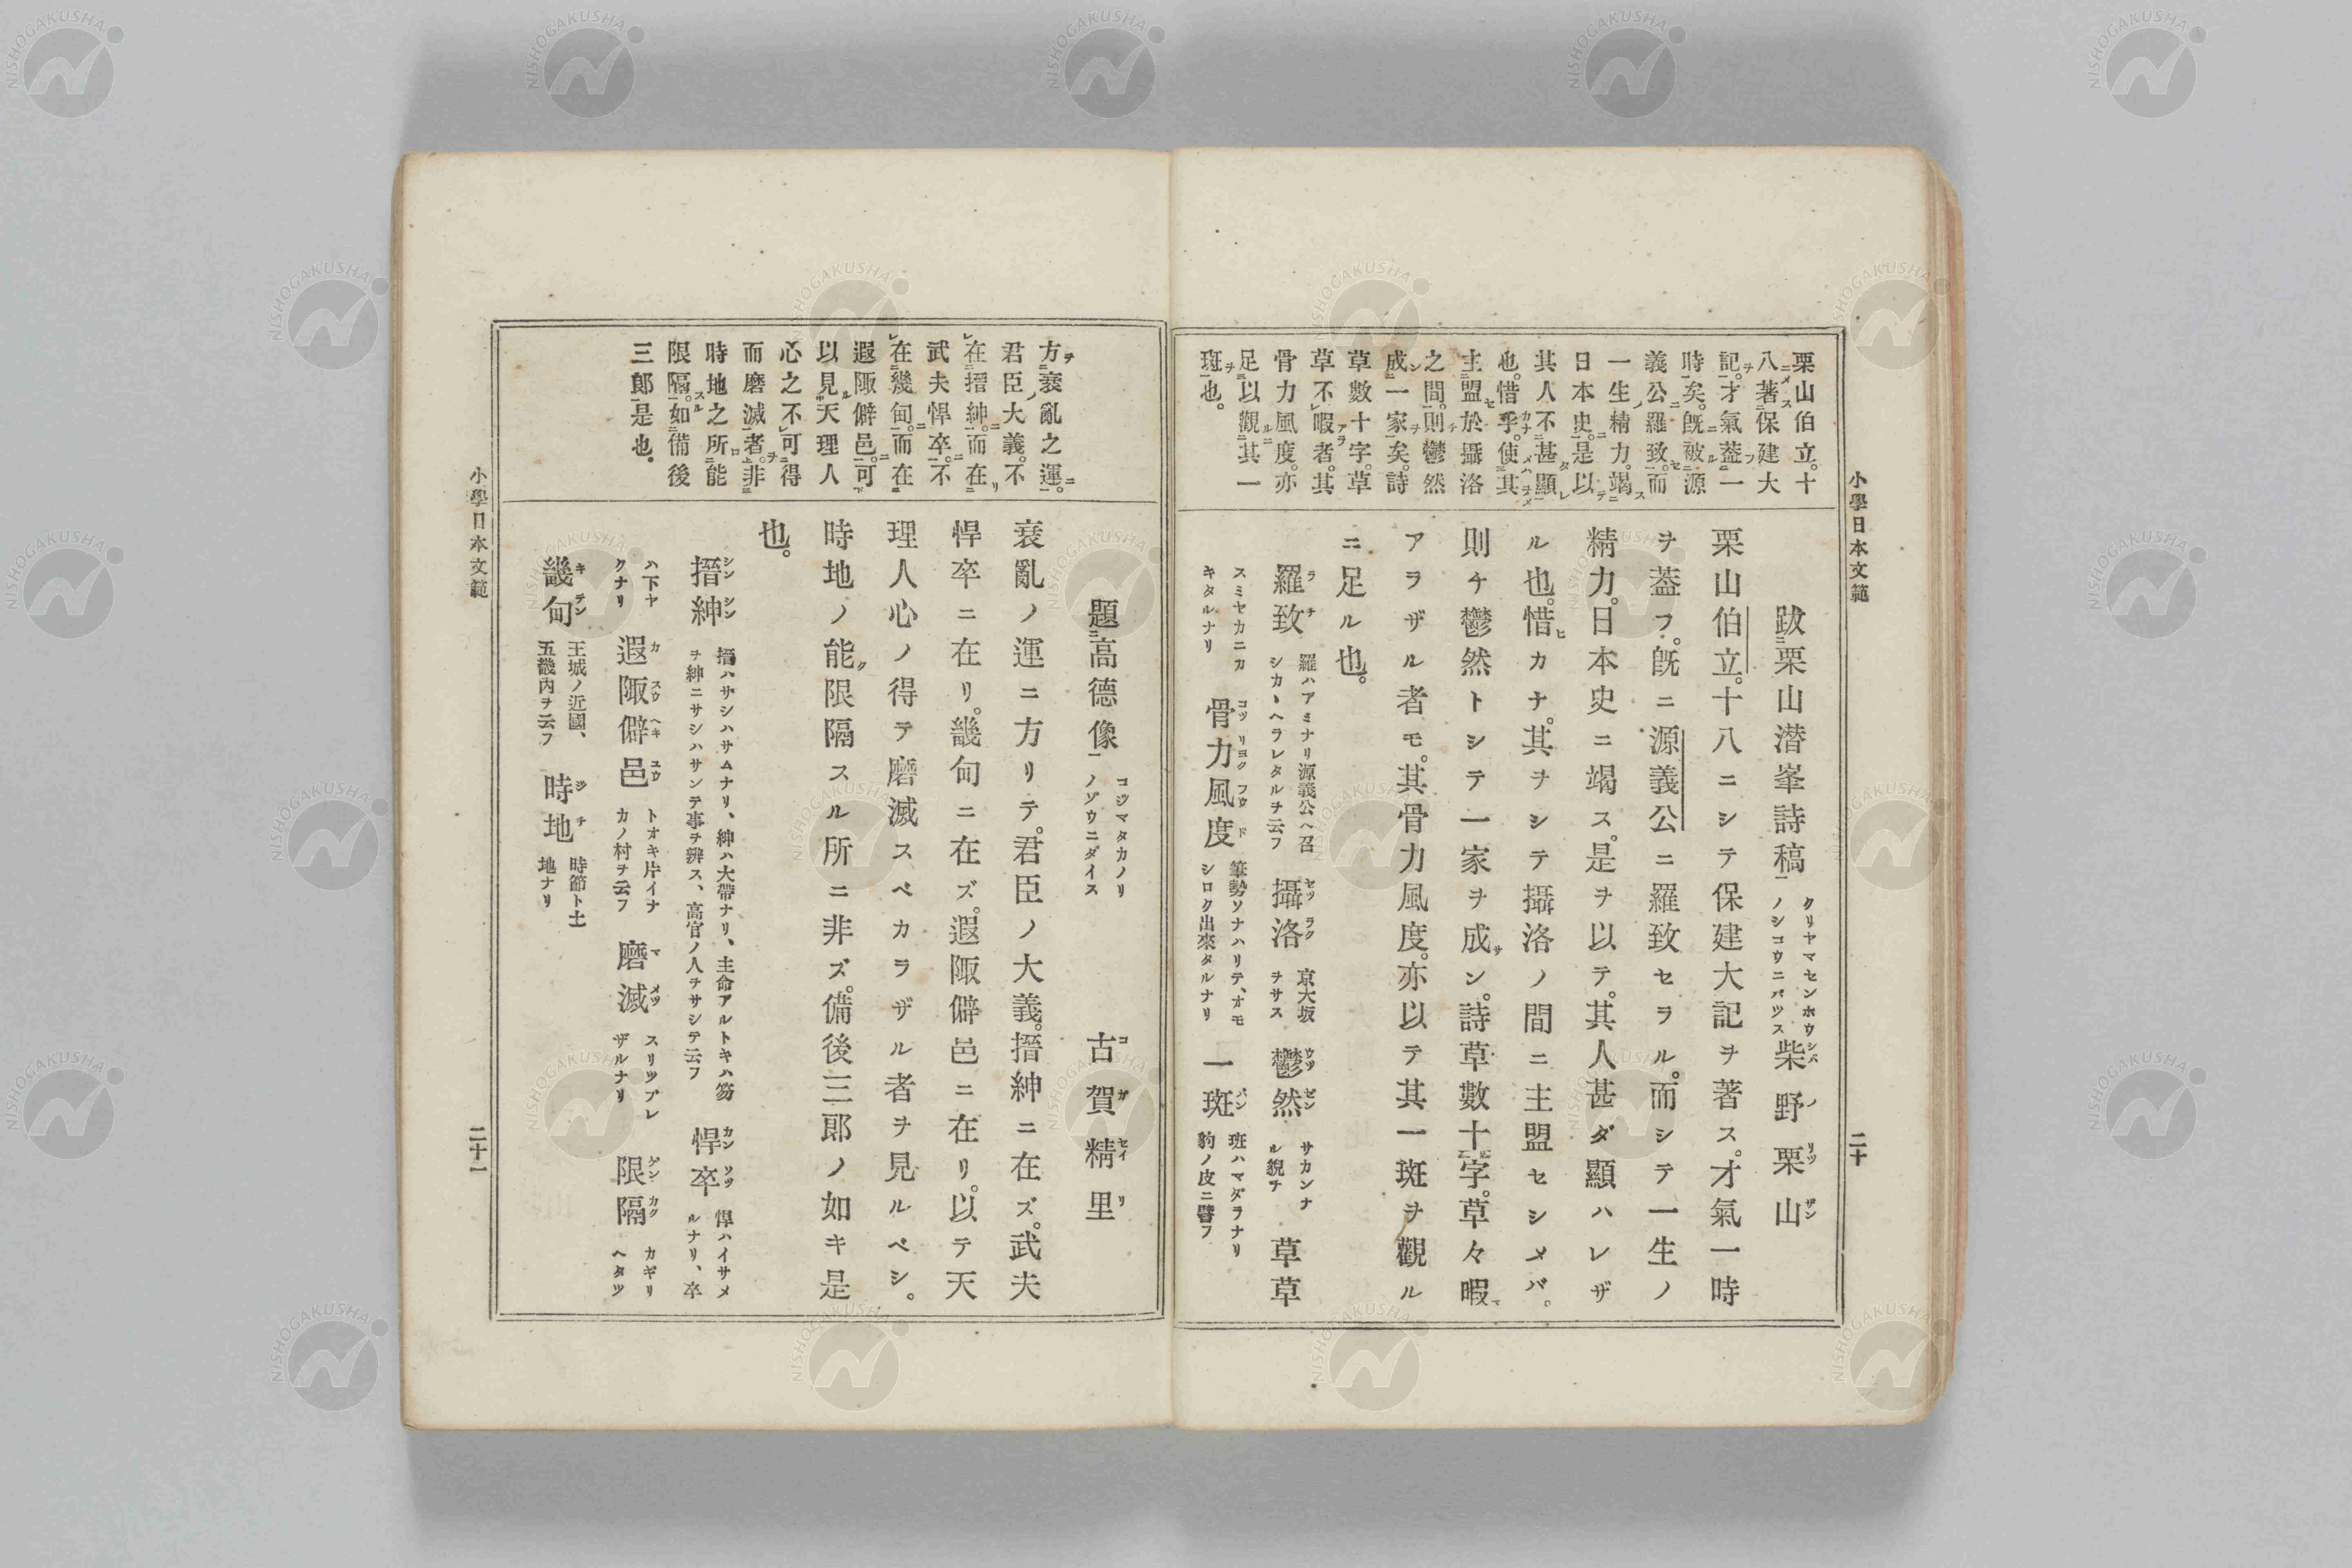 小學日本文範
二十
栗山伯立。十
八著保建大
記。才氣葢一
時矣。既被源
義公羅致。而
一生精力。竭
日本史。是以
其人不甚顯
也。惜乎。使其
主盟於攝洛
之間。則鬱然
成一家矣。詩
草數十字。草
草不暇者。其
骨力風度。亦
足以觀其一
斑也。
跋栗山潜峯詩稿 クリヤマセンホウ ノシコウニバツス 柴野栗山
栗山伯立。十八ニシテ保建大記ヲ著ス。才氣一時
ヲ葢フ。既ニ源義公ニ羅致セラル。而シテ一生ノ
精力。日本史ニ竭ス。是ヲ以テ。其人甚ダ顯ハレザ
ル也。惜カナ。其ヲシテ攝洛ノ間ニ主盟セシメバ。
則チ鬱然トシテ一家ヲ成ン。詩草數十字。草々暇
アラザル者モ。其骨力風度。亦以テ其一斑ヲ觀ル
ニ足ル也。
羅致 羅ハアミナリ源義公ヘ召シカヽヘラレタルヲ云フ 攝洛 京大坂ヲサス 鬱然 サカンナル貌チ 草草
スミヤカニカキタルナリ 骨力風度 筆勢ソナハリテ、オモシロク出來タルナリ 一斑 斑ハマダラナリ豹ノ皮ニ譬フ
方衰亂之運。
君臣大義。不
在搢紳。而在
武夫悍卒。不
在畿甸。而在
遐陬僻邑。可
以見天理人
心之不可得
而磨滅者。非
時地之所能
限隔。如備後
三郎是也。
題高德像 コジマタカノリ ノゾウニダイス 古賀精里
衰亂ノ運ニ方リテ。君臣ノ大義。搢紳ニ在ズ。武夫
悍卒ニ在リ。畿甸ニ在ズ。遐陬僻邑ニ在リ。以テ天
理人心ノ得テ磨滅スベカラザル者ヲ見ルベシ。
時地ノ能限隔スル所ニ非ズ。備後三郎ノ如キ是
也。
搢紳 搢ハサシハサムナリ、紳ハ大帶ナリ、主命アルトキハ笏ヲ紳ニサシハサンテ事ヲ辨ス、高官ノ人ヲサシテ云フ 悍卒 悍ハイサメルナリ、卒
ハ下ヤクナリ 遐陬僻邑 トオキ片イナカノ村ヲ云フ 磨滅 スリツブレザルナリ 限隔 カギリヘタツ
畿甸 王城ノ近國、五畿内ヲ云フ 時地 時節ト土地ナリ
小學日本文範
二十一
NISHOGAKUSHA